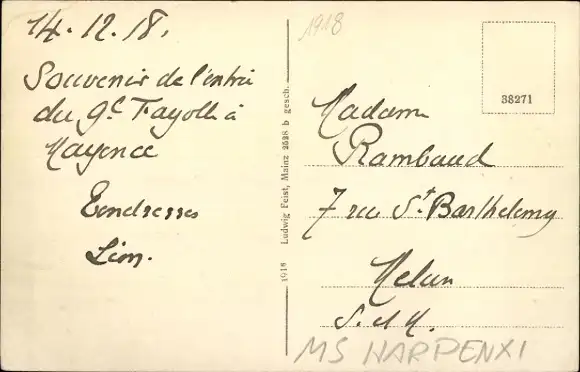 14.12.18.
Souvenir de l'entrée
du Gal Fayolle à
Mayence
Tendresses
Léon.
1918
1916 Ludwig Feist, Mainz 2528 b gesch.
38271
Madame
Rambaud
7 rue St Barthelemy
Melun
S. et M.
MS HARPENXI